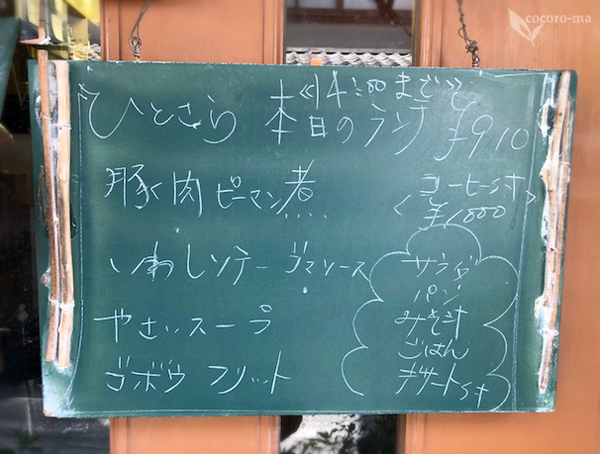 cocoro-ma
《14:00まで》
ひとさら 本日のランチ ¥910
豚肉ピーマン煮
コーヒーS付
〈¥1000〉
いわしソテー ゴマソース
やさいスープ
ゴボウ フリット
サラダ
パン
みそ汁
ごはん
デザートS付